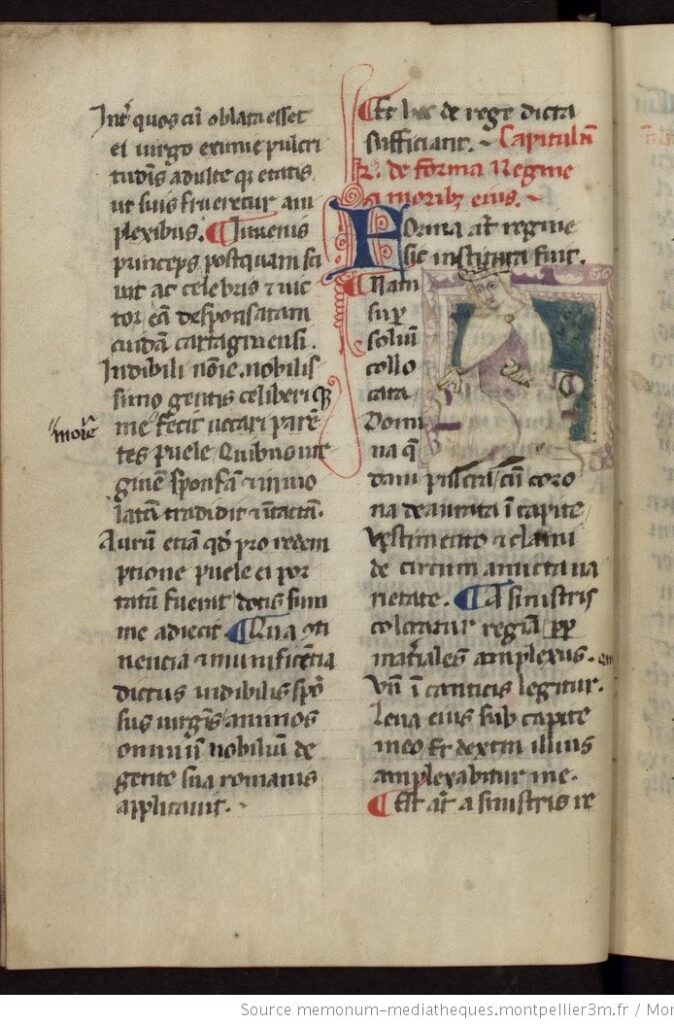 Int̾ quos cū oblata esset
ei virgo eximie pulcri
tudīs adulte qꝫ etatis
ut suis frueretur am
plexibus. ¶ Iuvenis
princeps postquam sci
vit ac celebris ⁊ vic
tor eā desponsatam
cuidā cartaginensi.
Indibili nōie. nobilis
simo gentis celiberi
me fecit vocari parē
morē
tes puele Quibus vir
ginē sponsā ⁊ invio
latā tradidit ⁊ ītactā.
Aurū etiā qd̄ pro redem
ptione puele ei por
tatū fuerat dotis sum
me adiecit. ¶ Qua
nencia ⁊ munificētia
dictus indibilis spō
sus virgīs animos
omniū nobiliū de
gente sua romanis
applicavit.
¶ Et hec de rege dicta
sufficiant. Capitulū
de forma Regine
⁊ moribꝫ eius.
Forma aūt regine
sic instituta fuit.
¶ Nam
sup̄
soliū
collo
cata
Domi
na q̄
dam pingitur cū coro
na deaurata ī capite
vestimento ⁊ clami
de circum amicta va
rietate. ¶ A sinistris
colocatur regia ꝓpt
mat̾iales amplexus.
Vn̄ ī canticis legitur.
Leva eius sub capite
meo Et dextra illius
amplexabitur me.
¶ Est aūt a sinistris re
Source memonum-mediatheques.montpellier3m.fr / Mon